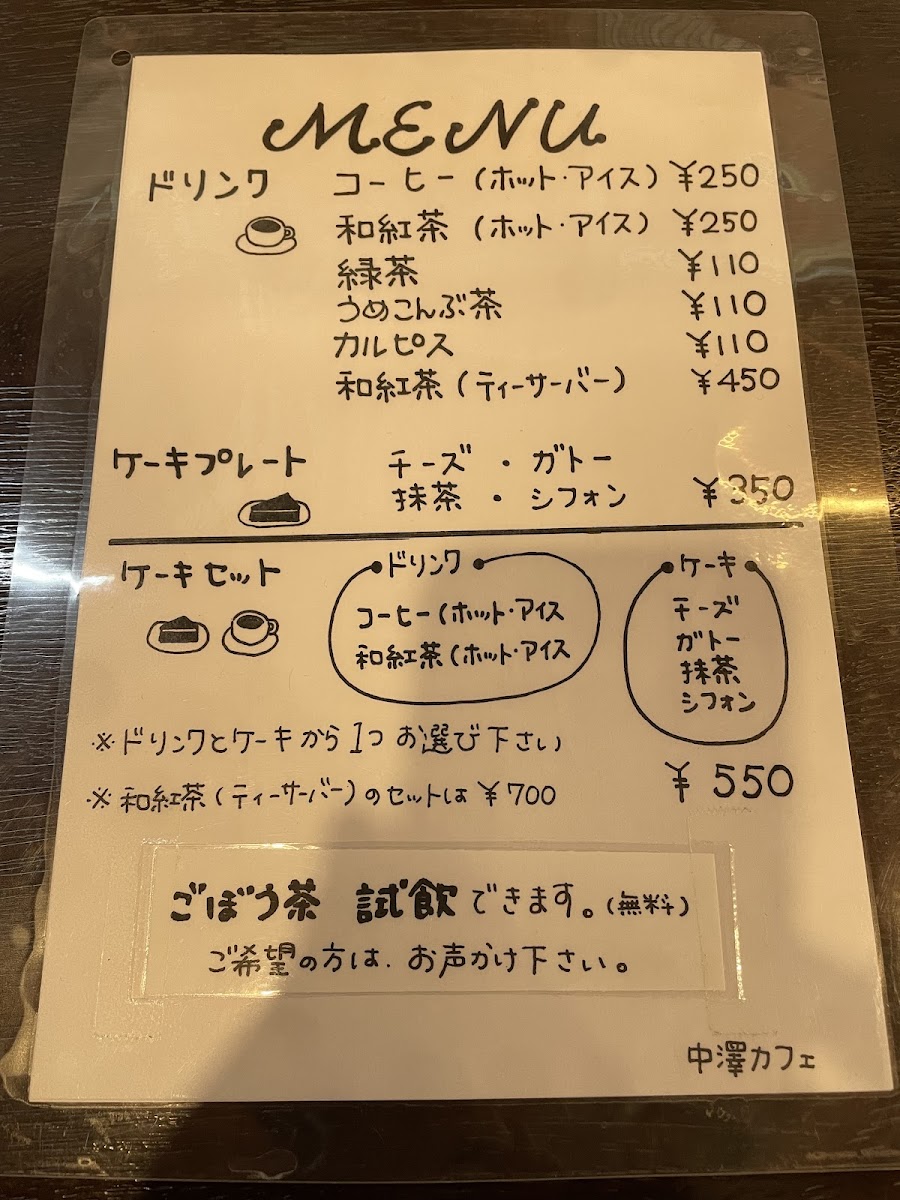 MENU
ドリンク コーヒー(ホット・アイス) ¥250
和紅茶(ホット・アイス) ¥250
緑茶 ¥110
うめこんぶ茶 ¥110
カルピス ¥110
和紅茶(ティーサーバー) ¥450
ケーキプレート チーズ・ガトー
抹茶・シフォン ¥350
ケーキセット
ドリンク
コーヒー(ホット・アイス
和紅茶(ホット・アイス
ケーキ
チーズ
ガトー
抹茶
シフォン
※ドリンクとケーキから1つお選び下さい
¥550
※和紅茶(ティーサーバー)のセットは¥700
ごぼう茶 試飲できます。(無料)
ご希望の方は、お声かけ下さい。
中澤カフェ